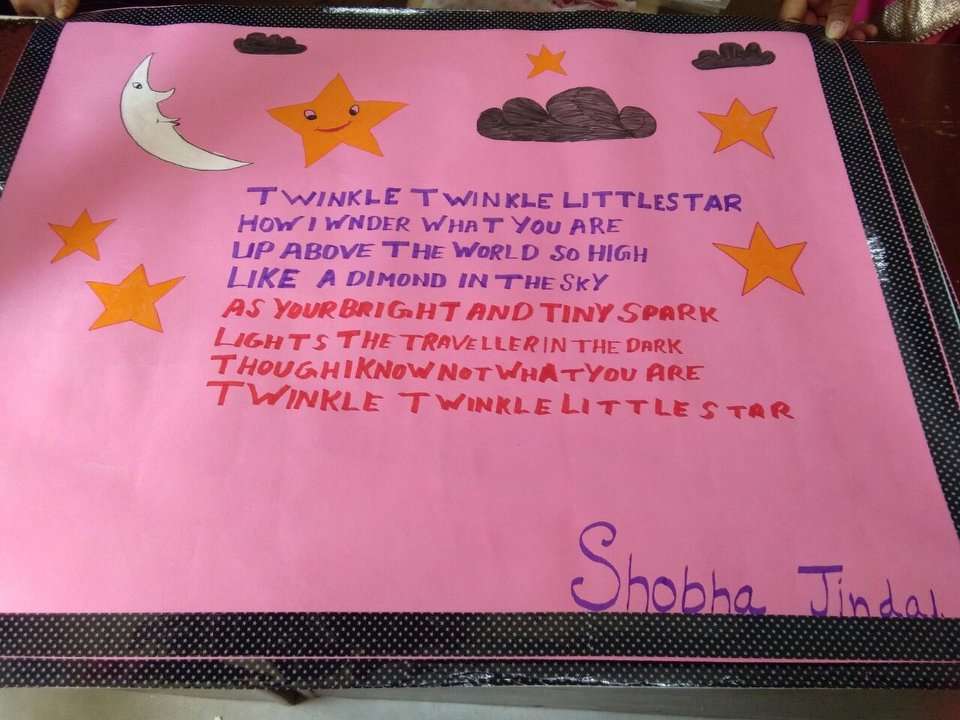 TWINKLE TWINKLE LITTLESTAR
HOW I WNDER WHAT YOU ARE
UP ABOVE THE WORLD SO HIGH
LIKE A DIMOND IN THE SKY
AS YOUR BRIGHT AND TINY SPARK
LIGHTS THE TRAVELLER IN THE DARK
THOUGH I KNOW NOT WHAT YOU ARE
TWINKLE TWINKLE LITTLE STAR
Shobha Jindal